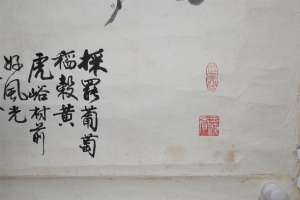 採罷葡萄
稻穀黃
虎峪村前
好風光